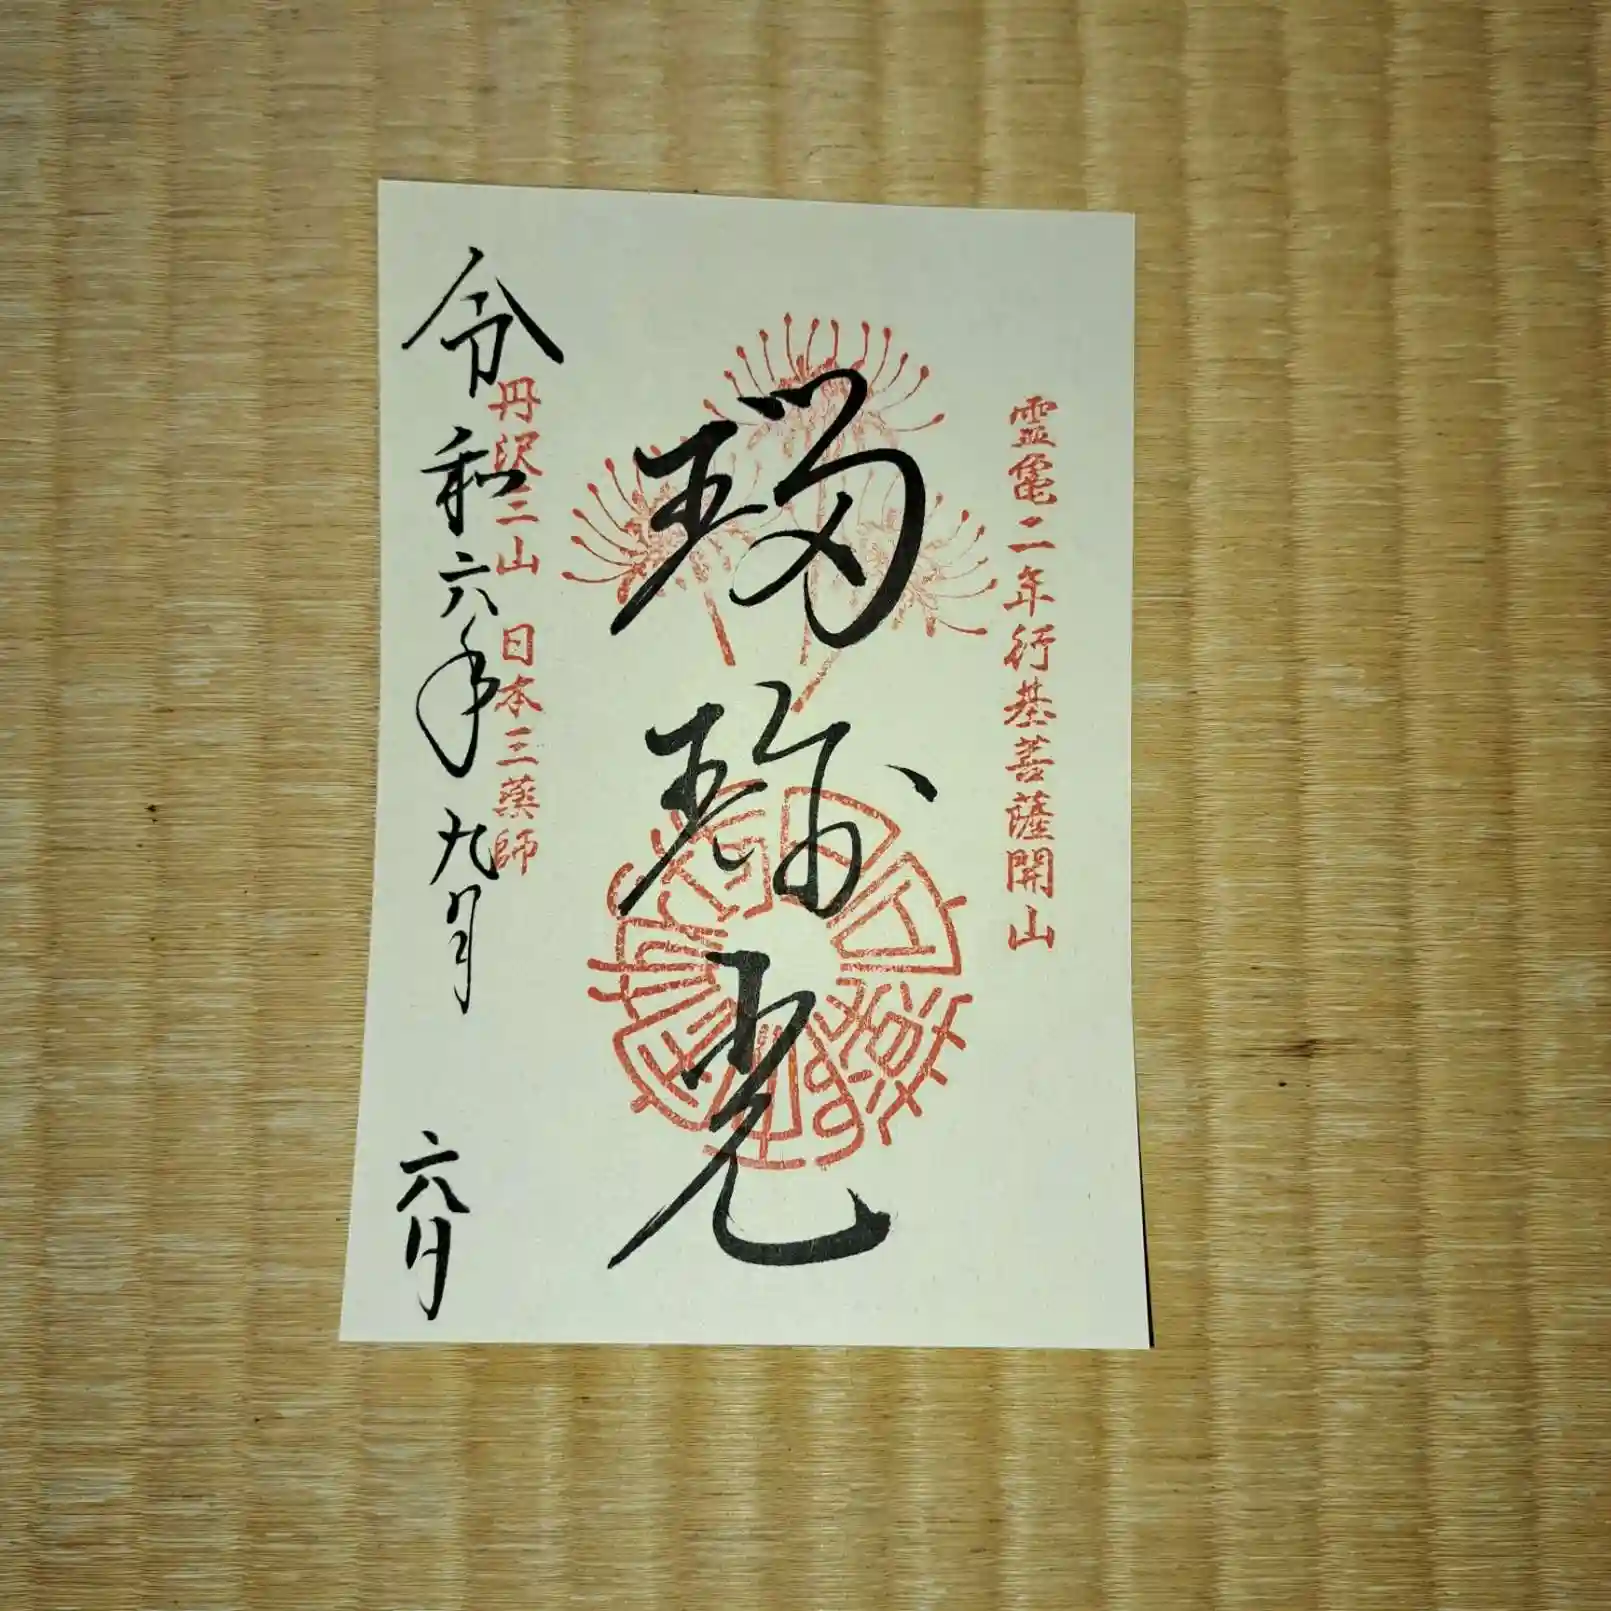 霊亀二年行基菩薩開山
瑠璃光
丹沢三山 日本三薬師
令和六年九月六日